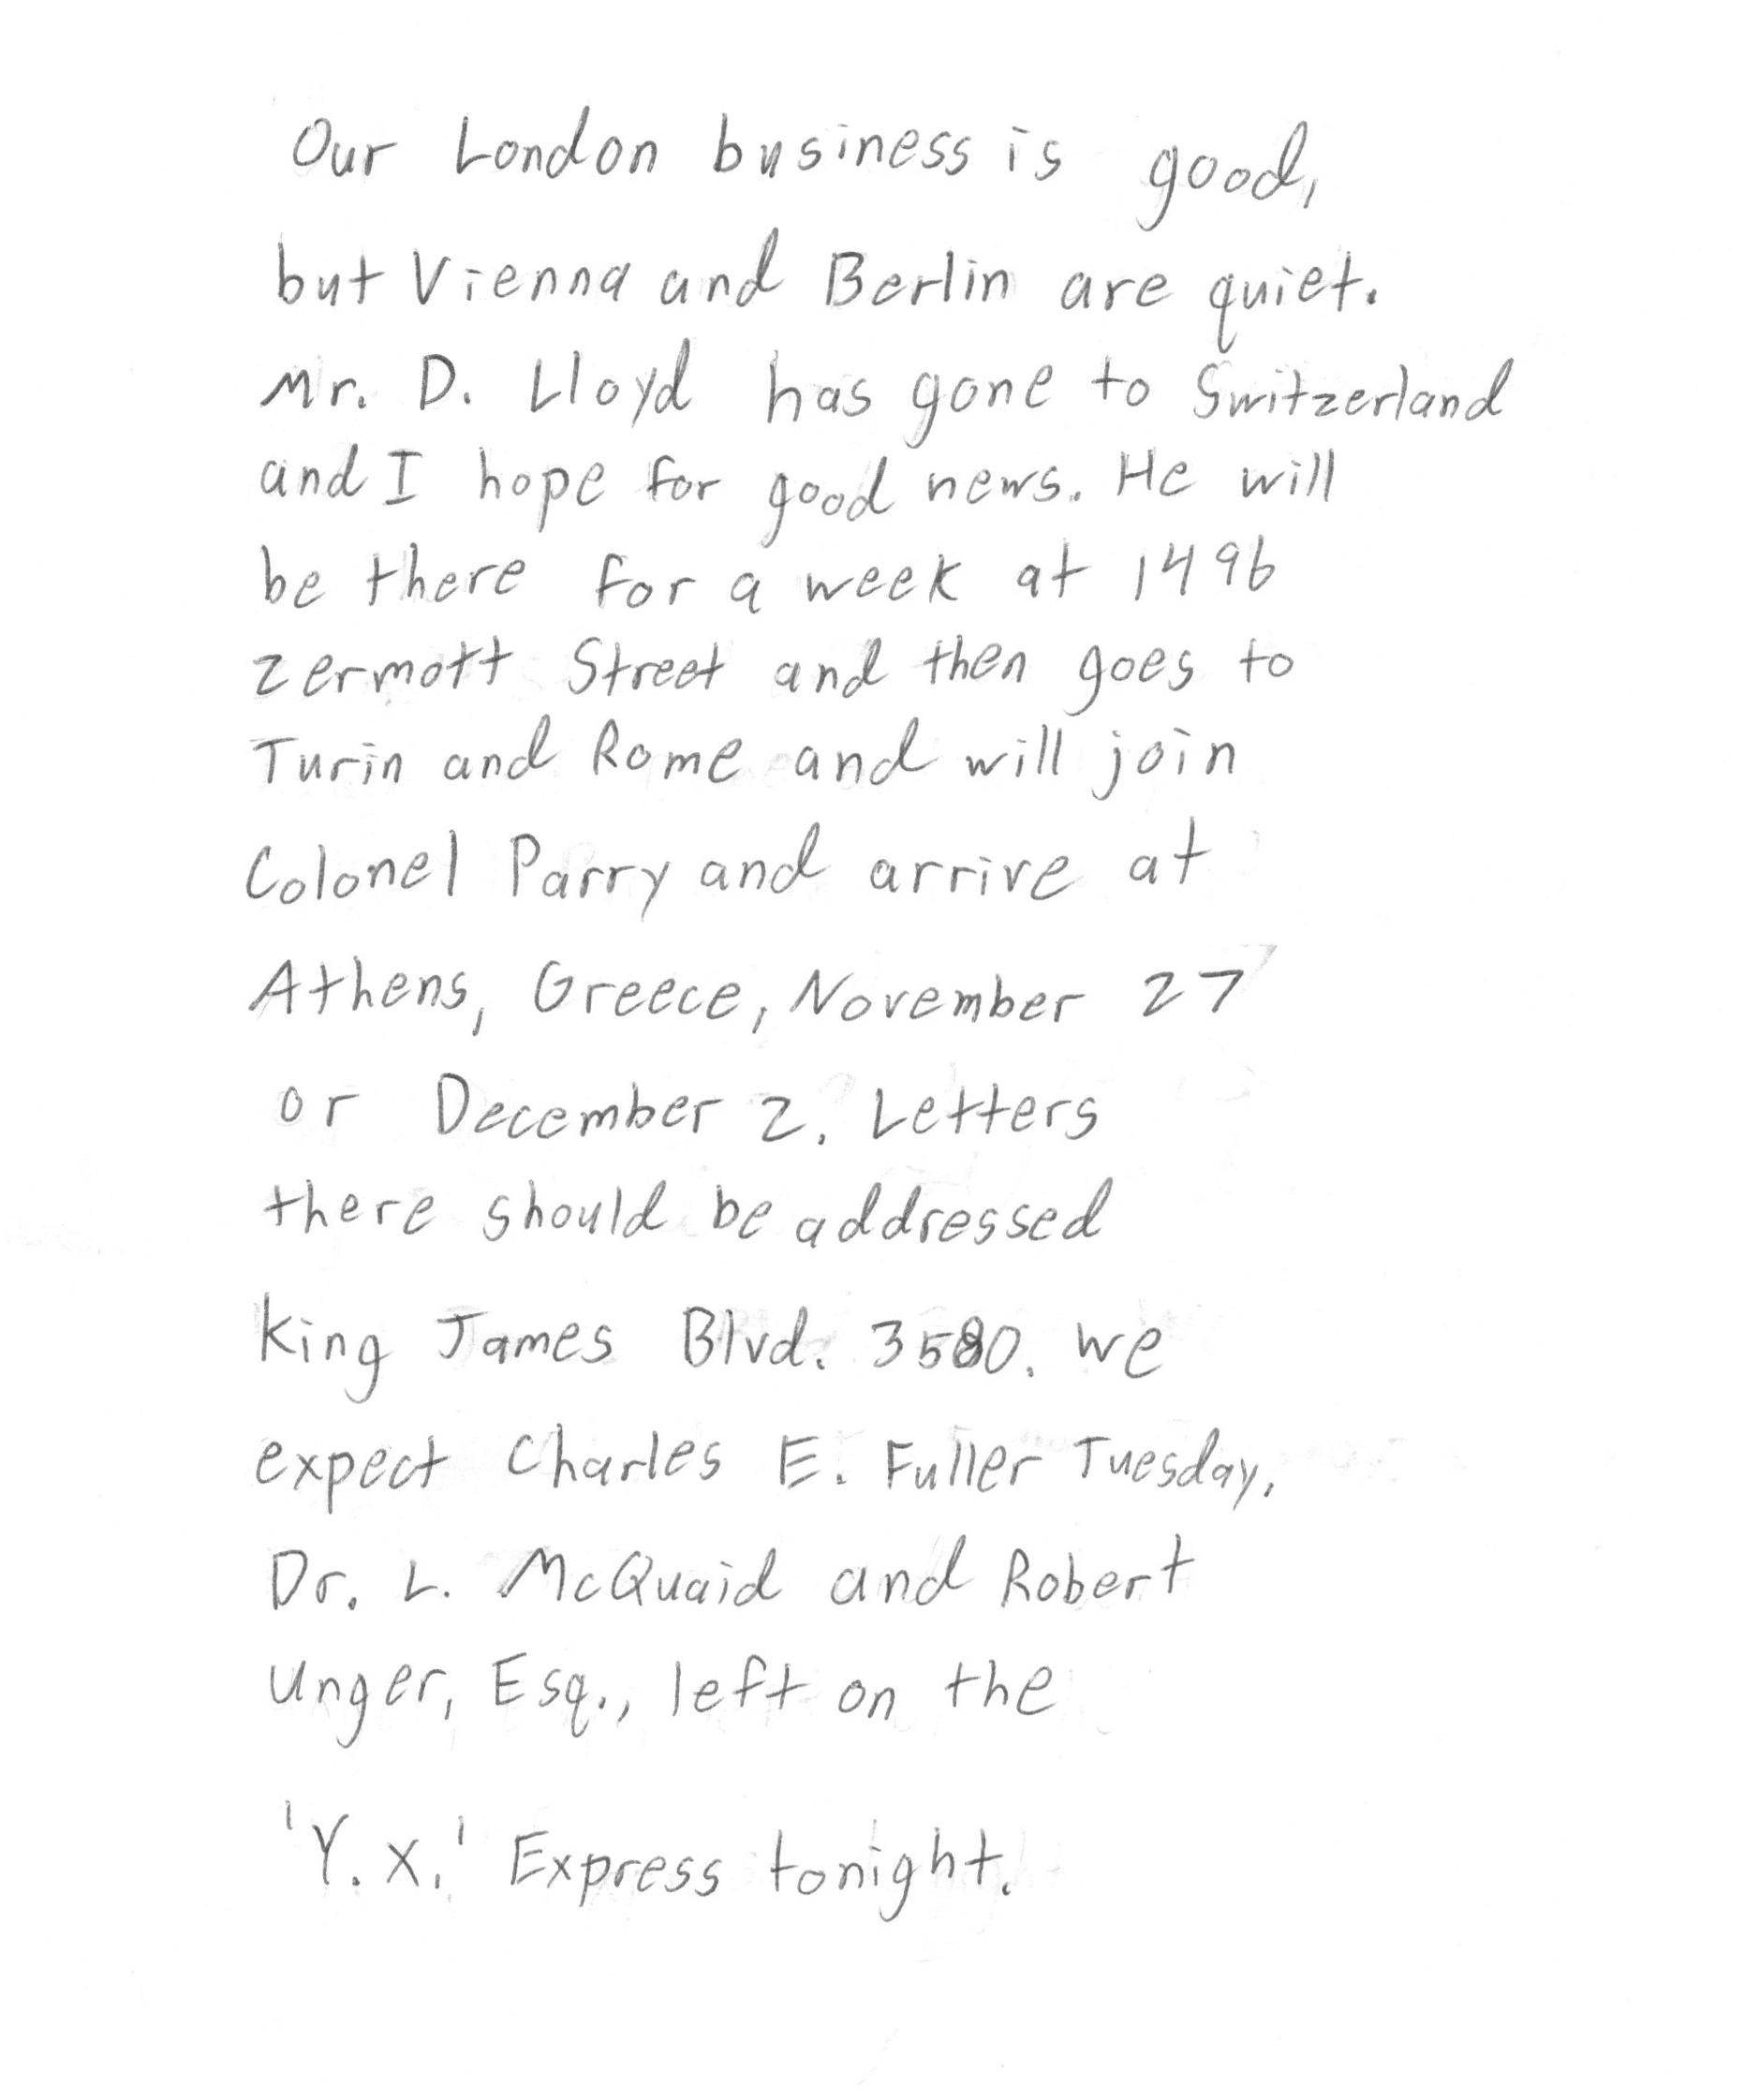 Our London business is good,
but Vienna and Berlin are quiet.
Mr. D. Lloyd has gone to Switzerland
and I hope for good news. He will
be there for a week at 1496
Zermott Street and then goes to
Turin and Rome and will join
Colonel Parry and arrive at
Athens, Greece, November 27
or December 2. Letters
there should be addressed
King James Blvd. 3580. We
expect Charles E. Fuller Tuesday.
Dr. L. McQuaid and Robert
Unger, Esq., left on the
'Y.X.' Express tonight.